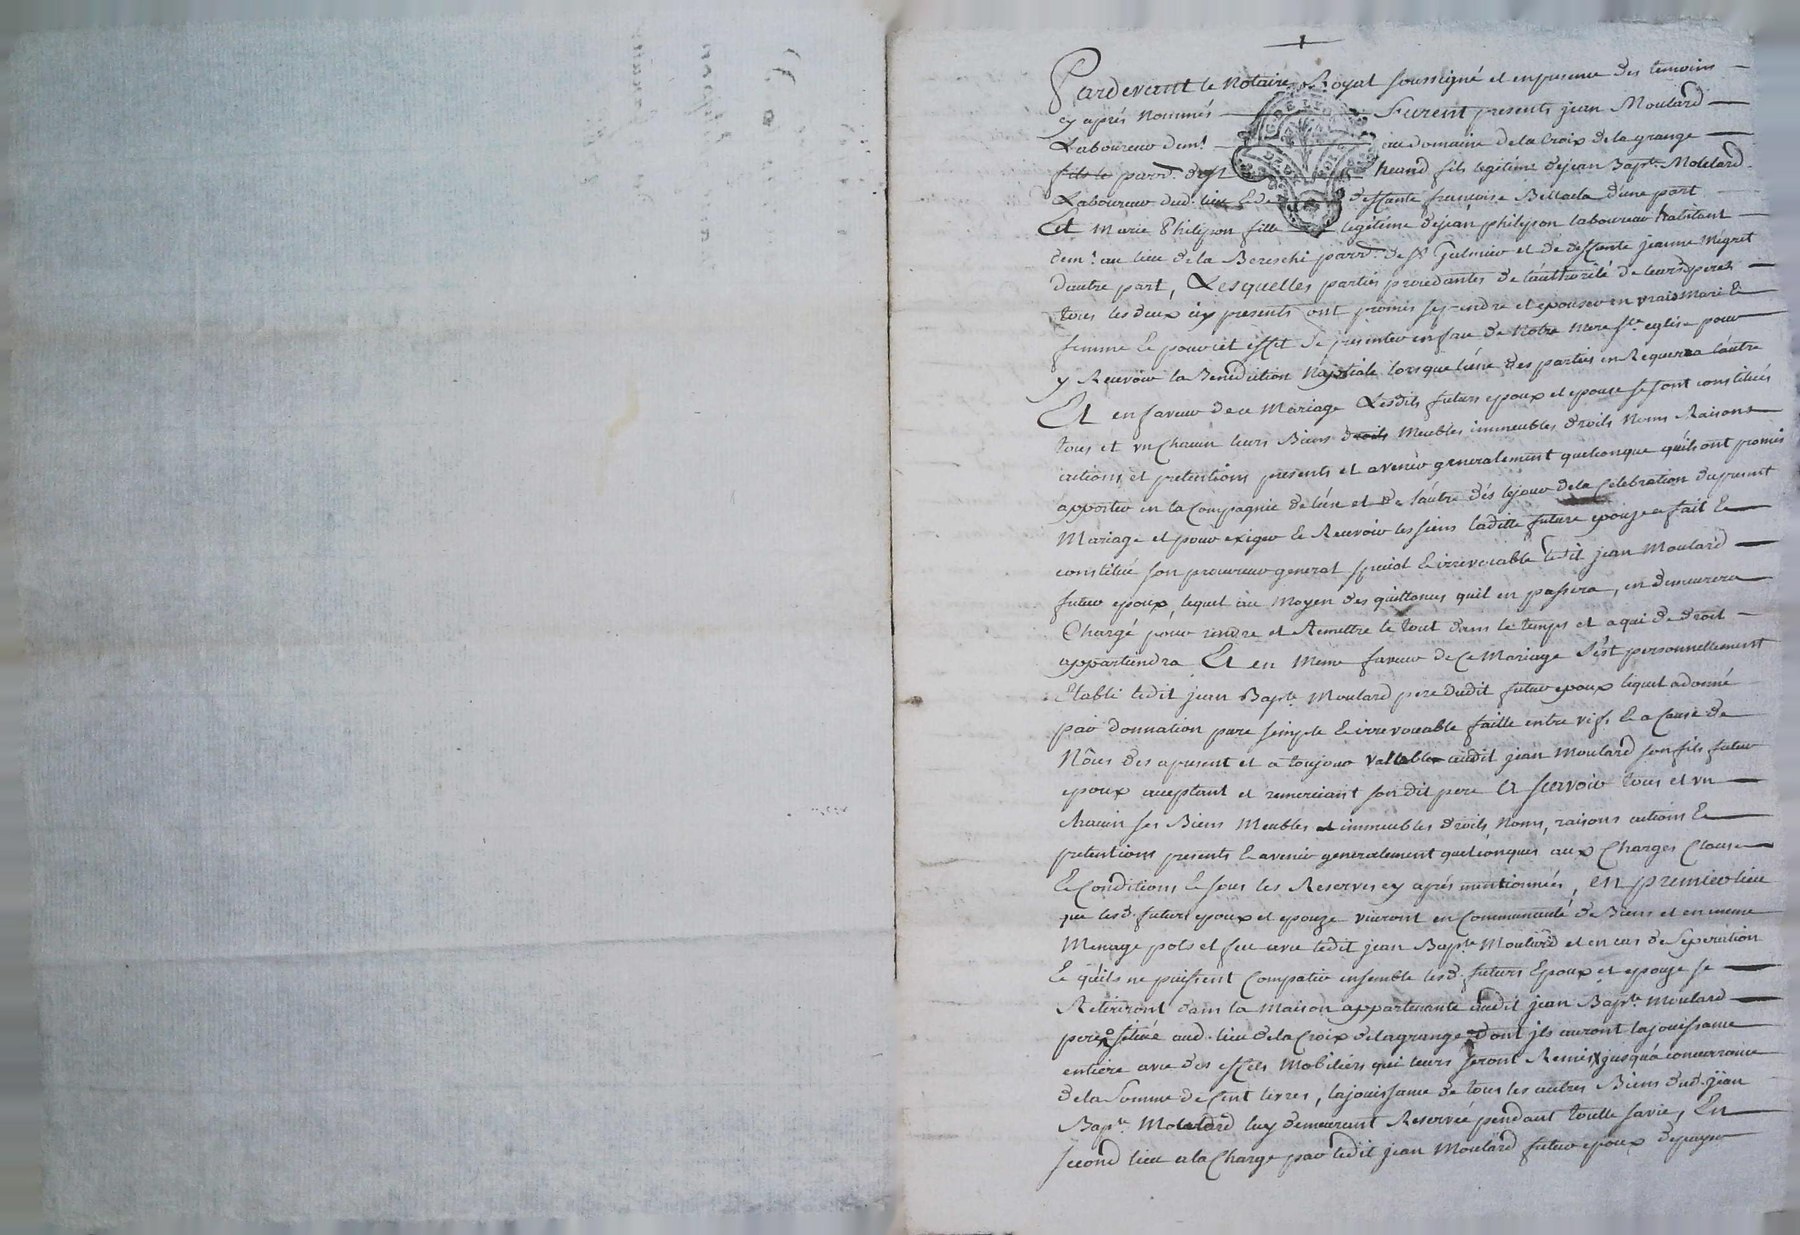 Pardevant le Notaire Royal soussigné et en presence des temoins
cy aprés Nommés Furent presents jean Moulard
Laboureur dem.t au domaine de la Croix de la grange
fils le parr. de st heand fils legitime de jean Bap.te Moulard
Laboureur dud. lieu & de deffante francoise Billacla d'une part
Et Marie Philipon fille legitime de jean philipon laboureur habitant
dem.t au lieu de la Bereschi parr. de st Galmier et de deffante jeanne Megret
dautre part, Lesquelles parties procedantes de l'authorité de leurs peres
tous les deux icy presents ont promis se prendre et epouser en vrais Mari &
femme & pour cet effet se presenter en face de Notre Mere s.te eglise pour
y Recevoir la Benediction Nuptiale lorsque l'une des parties en Requerra l'autre
Et en faveur de ce Mariage Lesdits futurs epoux et epouse se sont constitués
tous et un chacun leurs Biens droits Meubles immeubles droits Noms Raisons
actions et pretentions presents et avenir generalement quelconque qu'ils ont promis
apporter en la Compagnie de l'un et de l'autre dés le jour de la Celebration du present
Mariage et pour exiger & Recevoir les siens laditte future epouse a fait &
constitué son procureur general special & irrevocable ledit jean Moulard
futur epoux, lequel au Moyen des quittances quil en passera, en demeurera
Chargé pour rendre et Remettre le tout dans le temps et a qui de droit
appartiendra Et en Meme faveur de Ce Mariage s'est personnellement
Etabli ledit jean Bap.te Moulard pere dudit futur epoux lequel a donné
par donnation pure simple & irrevocable faitte entre vifs & a Cause de
Nôces des apresent et a toujour vallable audit jean Moulard son fils futur
epoux acceptant et remerciant son dit pere A scavoir tous et un
chacun ses Biens Meubles et immeubles droits Noms, raisons actions &
pretentions presents & avenir generalement quelconques aux Charges Clause
& Conditions & sous les Reserves cy aprés mentionnées, en premier lieu
que lesd. futurs epoux et epouze vivront en Communauté de Biens et en meme
Menage pots et feu avec ledit jean Bap.te Moulard et en cas de Seperation
& qu'ils ne puissent Compatir ensemble lesd. futurs Epoux et epouze se
Retireront dans la Maison appartenante audit jean Bap.te Moulard
pere située aud. lieu de la Croix de la grange dont ils auront la jouissance
entiere avec des effets Mobiliers qui leurs seront Remis jusqu'a concurrance
de la Somme de Cent livres, la jouissance de tous les autres Biens dud. jean
Bap.te Moulard luy demeurant Reservée pendant toutte sa vie, En
second lieu a la Charge par ledit jean Moulard futur epoux de payer